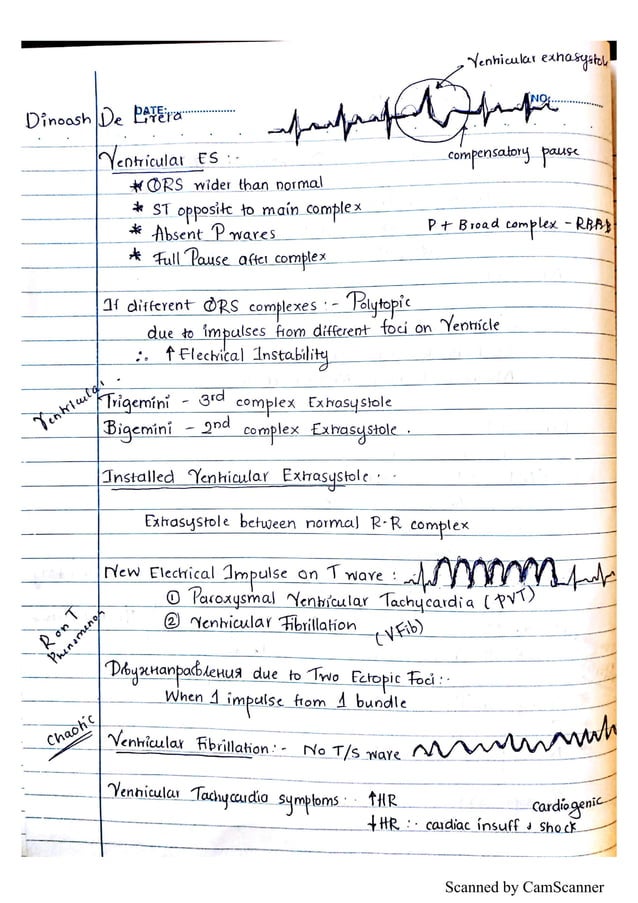 Ventricular extrasystol
Dinoash De
DATE:
NO:
compensatory pause
Ventricular ES :-
* QRS wider than normal
* ST opposite to main complex
* Absent P waves
P + Broad complex - RBBB
* Full Pause after complex
If different QRS complexes :- Polytopic
due to impulses from different foci on Ventricle
∴ ↑ Electrical Instability
Ventricular
Trigemini - 3rd complex Extrasystole
Bigemini - 2nd complex Extrasystole .
Installed Ventricular Extrasystole . .
Extrasystole between normal R-R complex
New Electrical Impulse on T wave :
① Paroxysmal Ventricular Tachycardia (PVT)
② Ventricular Fibrillation (VFib)
R on T
Phenomenon
due to Two Ectopic Foci :.
When 1 impulse from 1 bundle
Chaotic
Ventricular Fibrillation :- No T/S wave
Ventricular Tachycardia symptoms . . ↑HR
↓HR :. cardiac insuff & Cardiogenic shock
Scanned by CamScanner